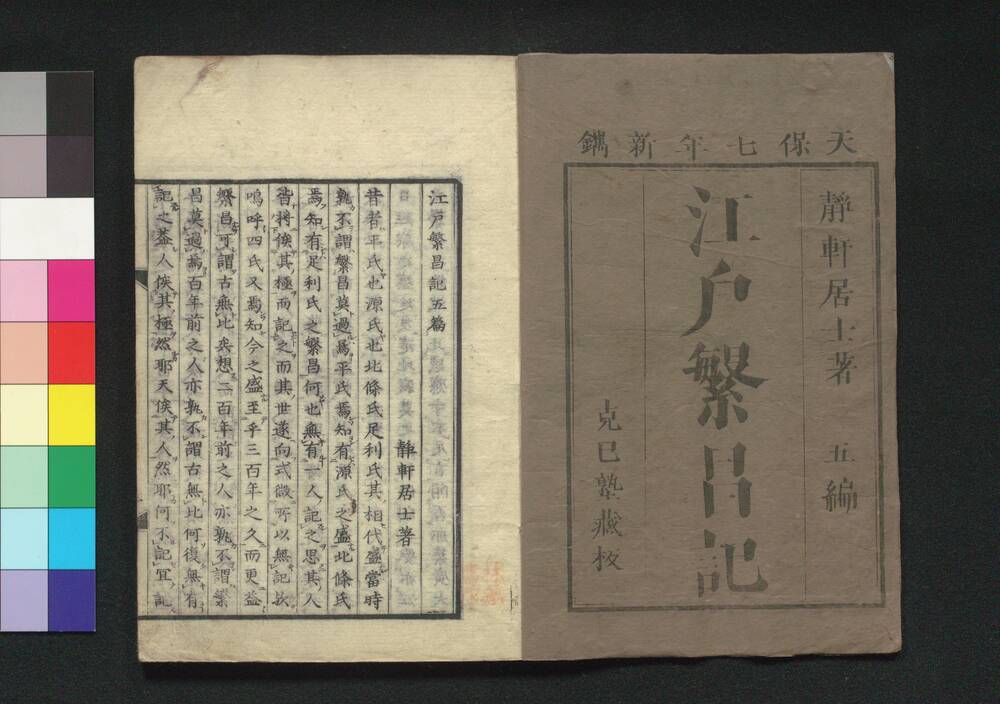 天保七年新鐫
靜軒居士著 五編
江戸繁昌記
克巳塾藏板
江戸繁昌記五篇
靜軒居士著
昔者平氏也源氏也北條氏足利氏其相代盛當時
孰不謂繁昌莫過焉平氏焉知有源氏之盛北條氏
焉知有足利氏之繁昌何也無有一人記之思其人
皆將俟其極而記之而其世遂向式微所以無記歟
嗚呼四氏又焉知今之盛至乎三百年之久而更益
繁昌可謂古無比矣想二百年前之人亦孰不謂繁
昌莫過焉百年前之人亦孰不謂古無比何復無有
記之蓋人俟其極然耶天俟其人然耶何不記冝記